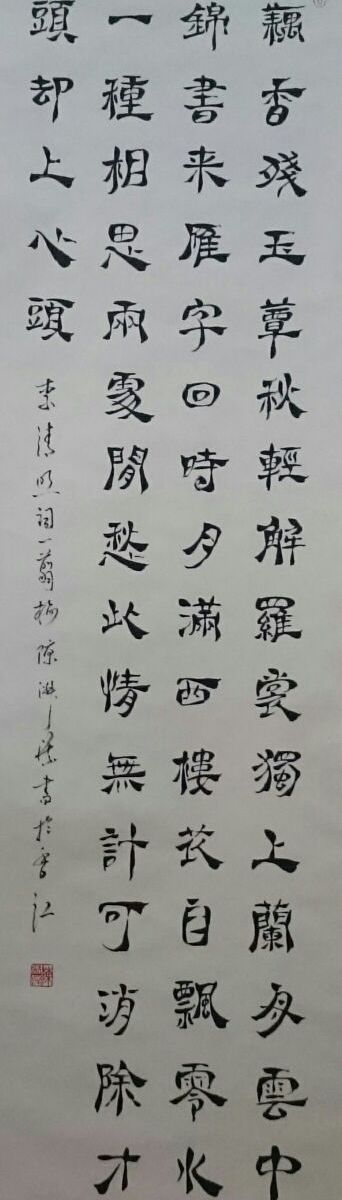 藕香殘玉簟秋輕解羅裳獨上蘭舟雲中
錦書来雁字回時月滿西樓花自飄零水
一種相思兩處閒愁此情無計可消除才
頭却上心頭
李清照詞一翦梅 陳書於香江